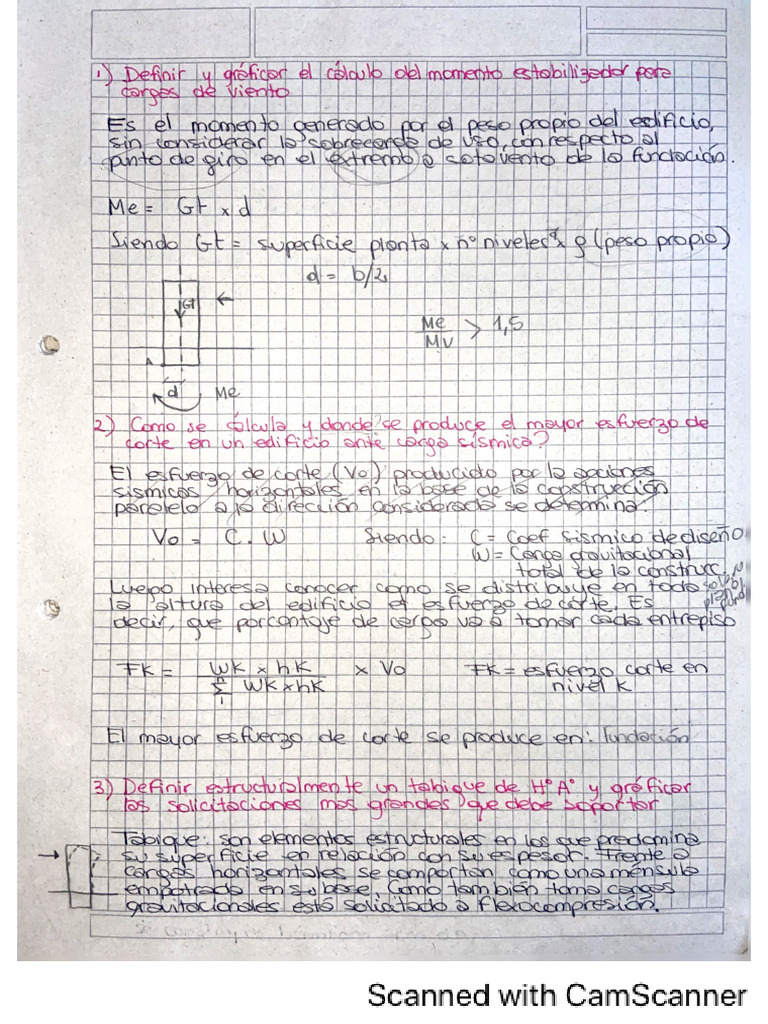 1) Definir y gráficar el cálculo del momento estabilizador para
cargas de viento
Es el momento generado por el peso propio del edificio,
sin considerar la sobrecarga de uso, con respecto al
punto de giro en el extremo a sotavento de la fundación.
Me = Gt x d
Siendo Gt = superficie planta x n° niveles x g (peso propio)
d = b/2
Gt
Me / Mv > 1,5
A
d
Me
2) Como se cálcula y donde se produce el mayor esfuerzo de
corte en un edificio ante carga sísmica?
El esfuerzo de corte (Vo) producido por la acciones
sísmicas horizontales en la base de la construcción
paralelo a la dirección considerada se determina:
Vo = C . W Siendo: C = Coef sísmico de diseño
W = Carga gravitacional
total de la construc.
Luego interesa conocer como se distribuye en toda
la altura del edificio el esfuerzo de corte. Es
decir, que porcentaje de carga va a tomar cada entrepiso
FK = WK x hK / Σ WK x hK x Vo FK = esfuerzo corte en
nivel K
El mayor esfuerzo de corte se produce en: fundación
3) Definir estructuralmente un tabique de H°A° y gráficar
las solicitaciones mas grandes que debe soportar
Tabique: son elementos estructurales en los que predomina
su superficie en relación con su espesor. Frente a
cargas horizontales se comportan como una ménsula
empotrada en su base. Como también toma cargas
gravitacionales está solicitado a flexocompresión.
Scanned with CamScanner